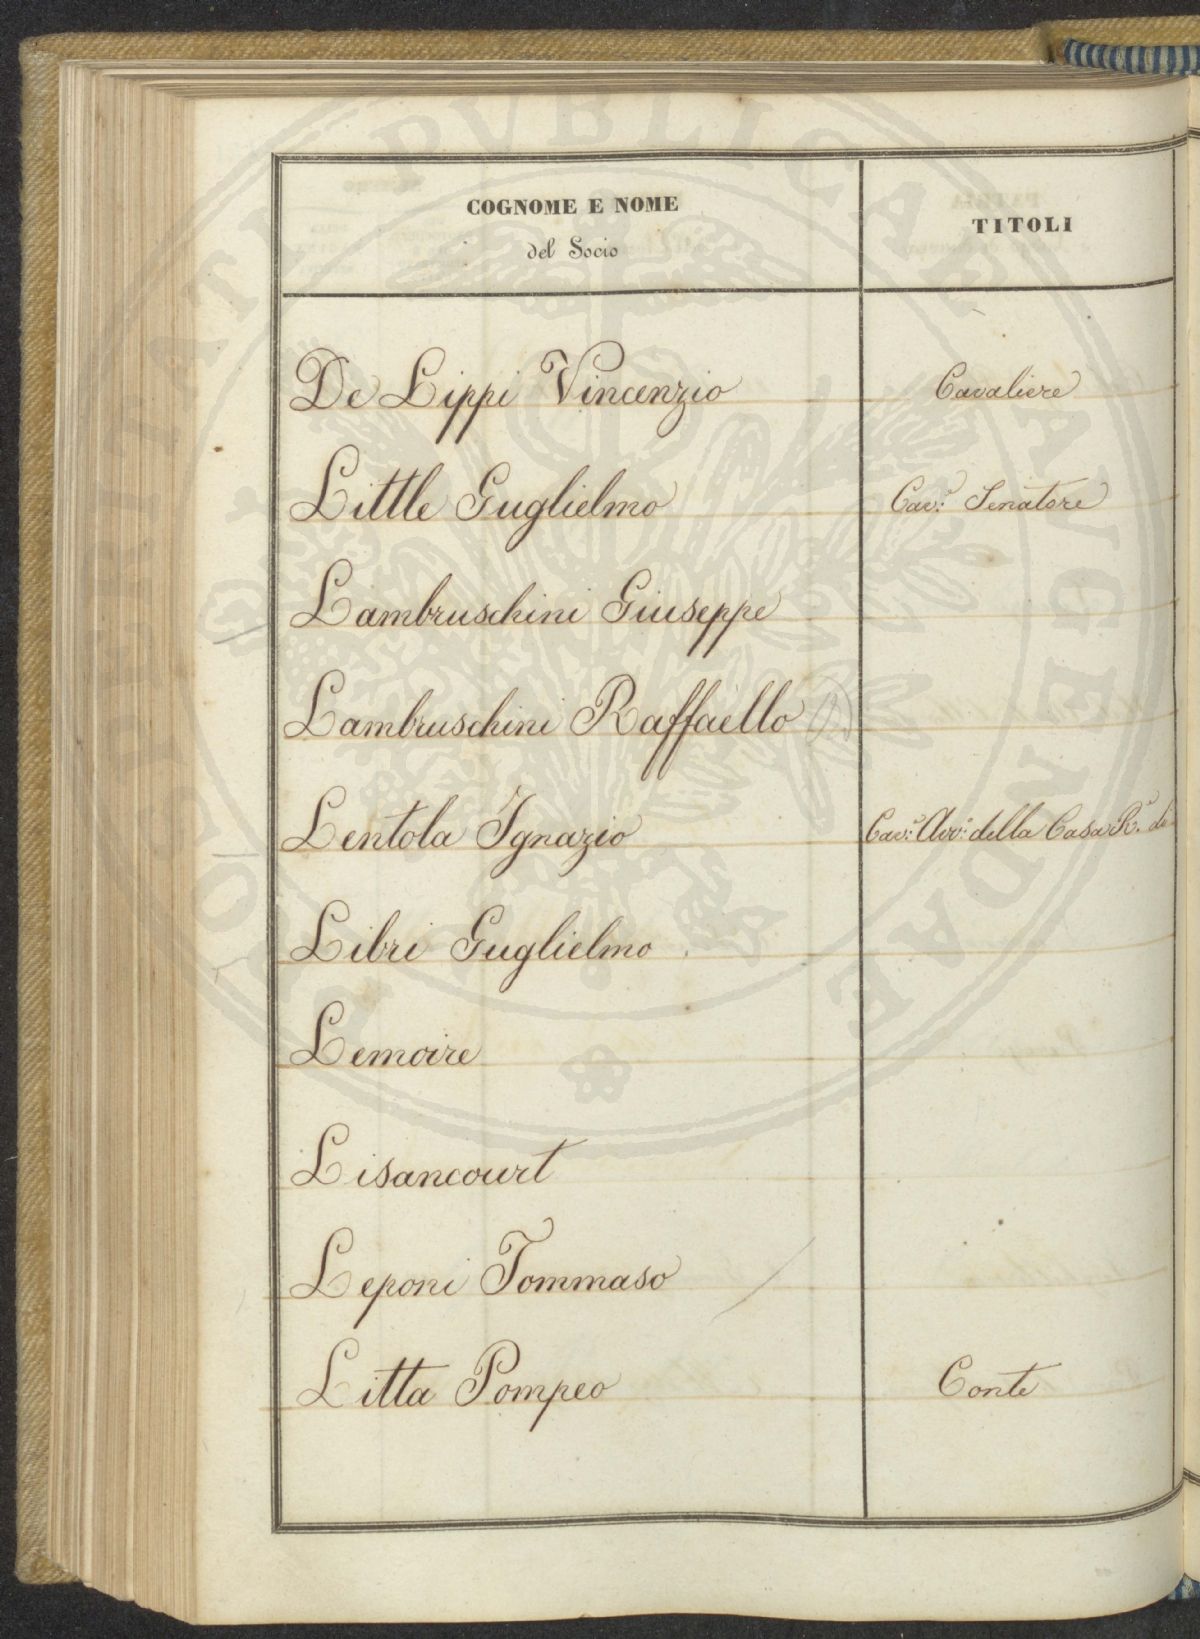 COGNOME E NOME
del Socio
TITOLI
De Lippi Vincenzio Cavaliere
Little Guglielmo Cav.e Senatore
Lambruschini Giuseppe
Lambruschini Raffaello
Lentola Ignazio Cav.e Avv.o della Casa R. di
Libri Guglielmo
Lemoire
Lisancourt
Leponi Tommaso
Litta Pompeo Conte